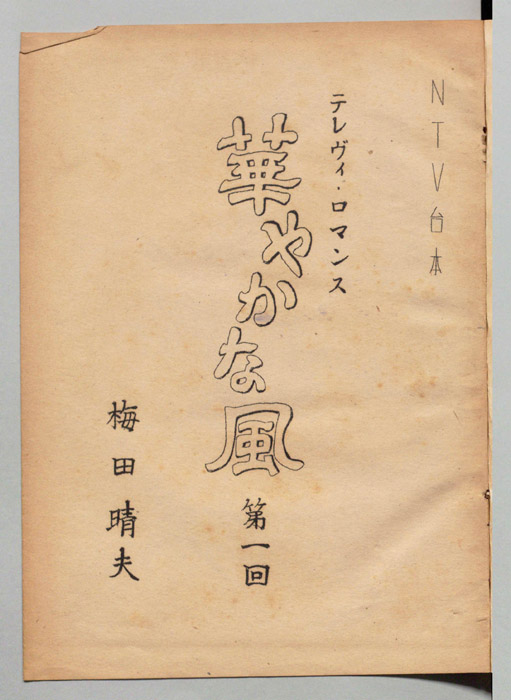 NTV台本
テレヴィ・ロマンス
華やかな風
第一回
梅田晴夫